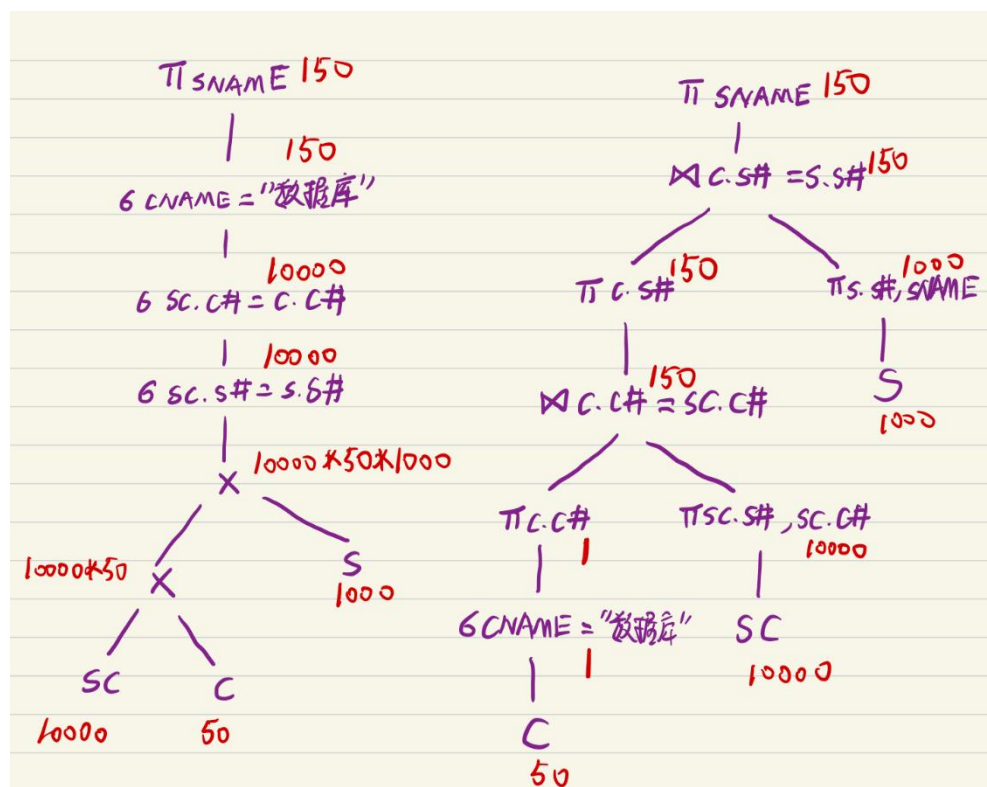 π SNAME 150
150
6 CNAME = "数据库"
10000
6 SC.C# = C.C#
10000
6 SC.S# = S.S#
× 10000*50*1000
10000*50 ×
S
1000
SC
C
10000
50
π SNAME 150
⋈ C.S# = S.S# 150
π C.S# 150
1000
π S.S#, SNAME
150
⋈ C.C# = SC.C#
S
1000
π C.C#
1
π SC.S#, SC.C#
10000
6 CNAME = "数据库"
1
SC
10000
C
50